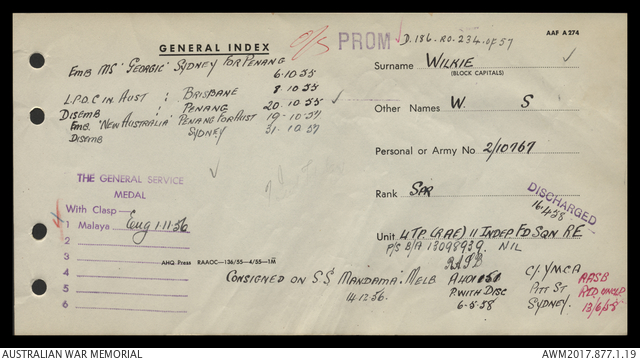 AAF A274
GENERAL INDEX
O/S PROM D.186. RO. 234. OF 57
EMB MS 'GEORGIC' SYDNEY FOR PENANG
6.10.55
Surname WILKIE
(BLOCK CAPITALS)
L.P.O.C IN AUST : BRISBANE 8.10.55
DISEMB : PENANG 20.10.55
EMB. 'NEW AUSTRALIA' PENANG FOR AUST 19.10.57
DISEMB SYDNEY 31.10.57
Other Names W. S
Personal or Army No. 2/10767
THE GENERAL SERVICE
MEDAL
With Clasp
1 Malaya Eng 1-11-56
2
3
4
5
6
Rank SPR
DISCHARGED
16.4.58
Unit 4 TP. (RAE) 11 INDEP FD SQN RE
P/S B/A 13098939. NIL
AHQ Press RAAOC—136/55—4/55—1M
CONSIGNED ON S.S 'MANDAMA'. MELB
14.12.56.
P. WITH DISC
6-5.58
C/. Y.M.C.A
PITT ST
SYDNEY.
AASB
13/6/58
AUSTRALIAN WAR MEMORIAL
AWM2017.877.1.19